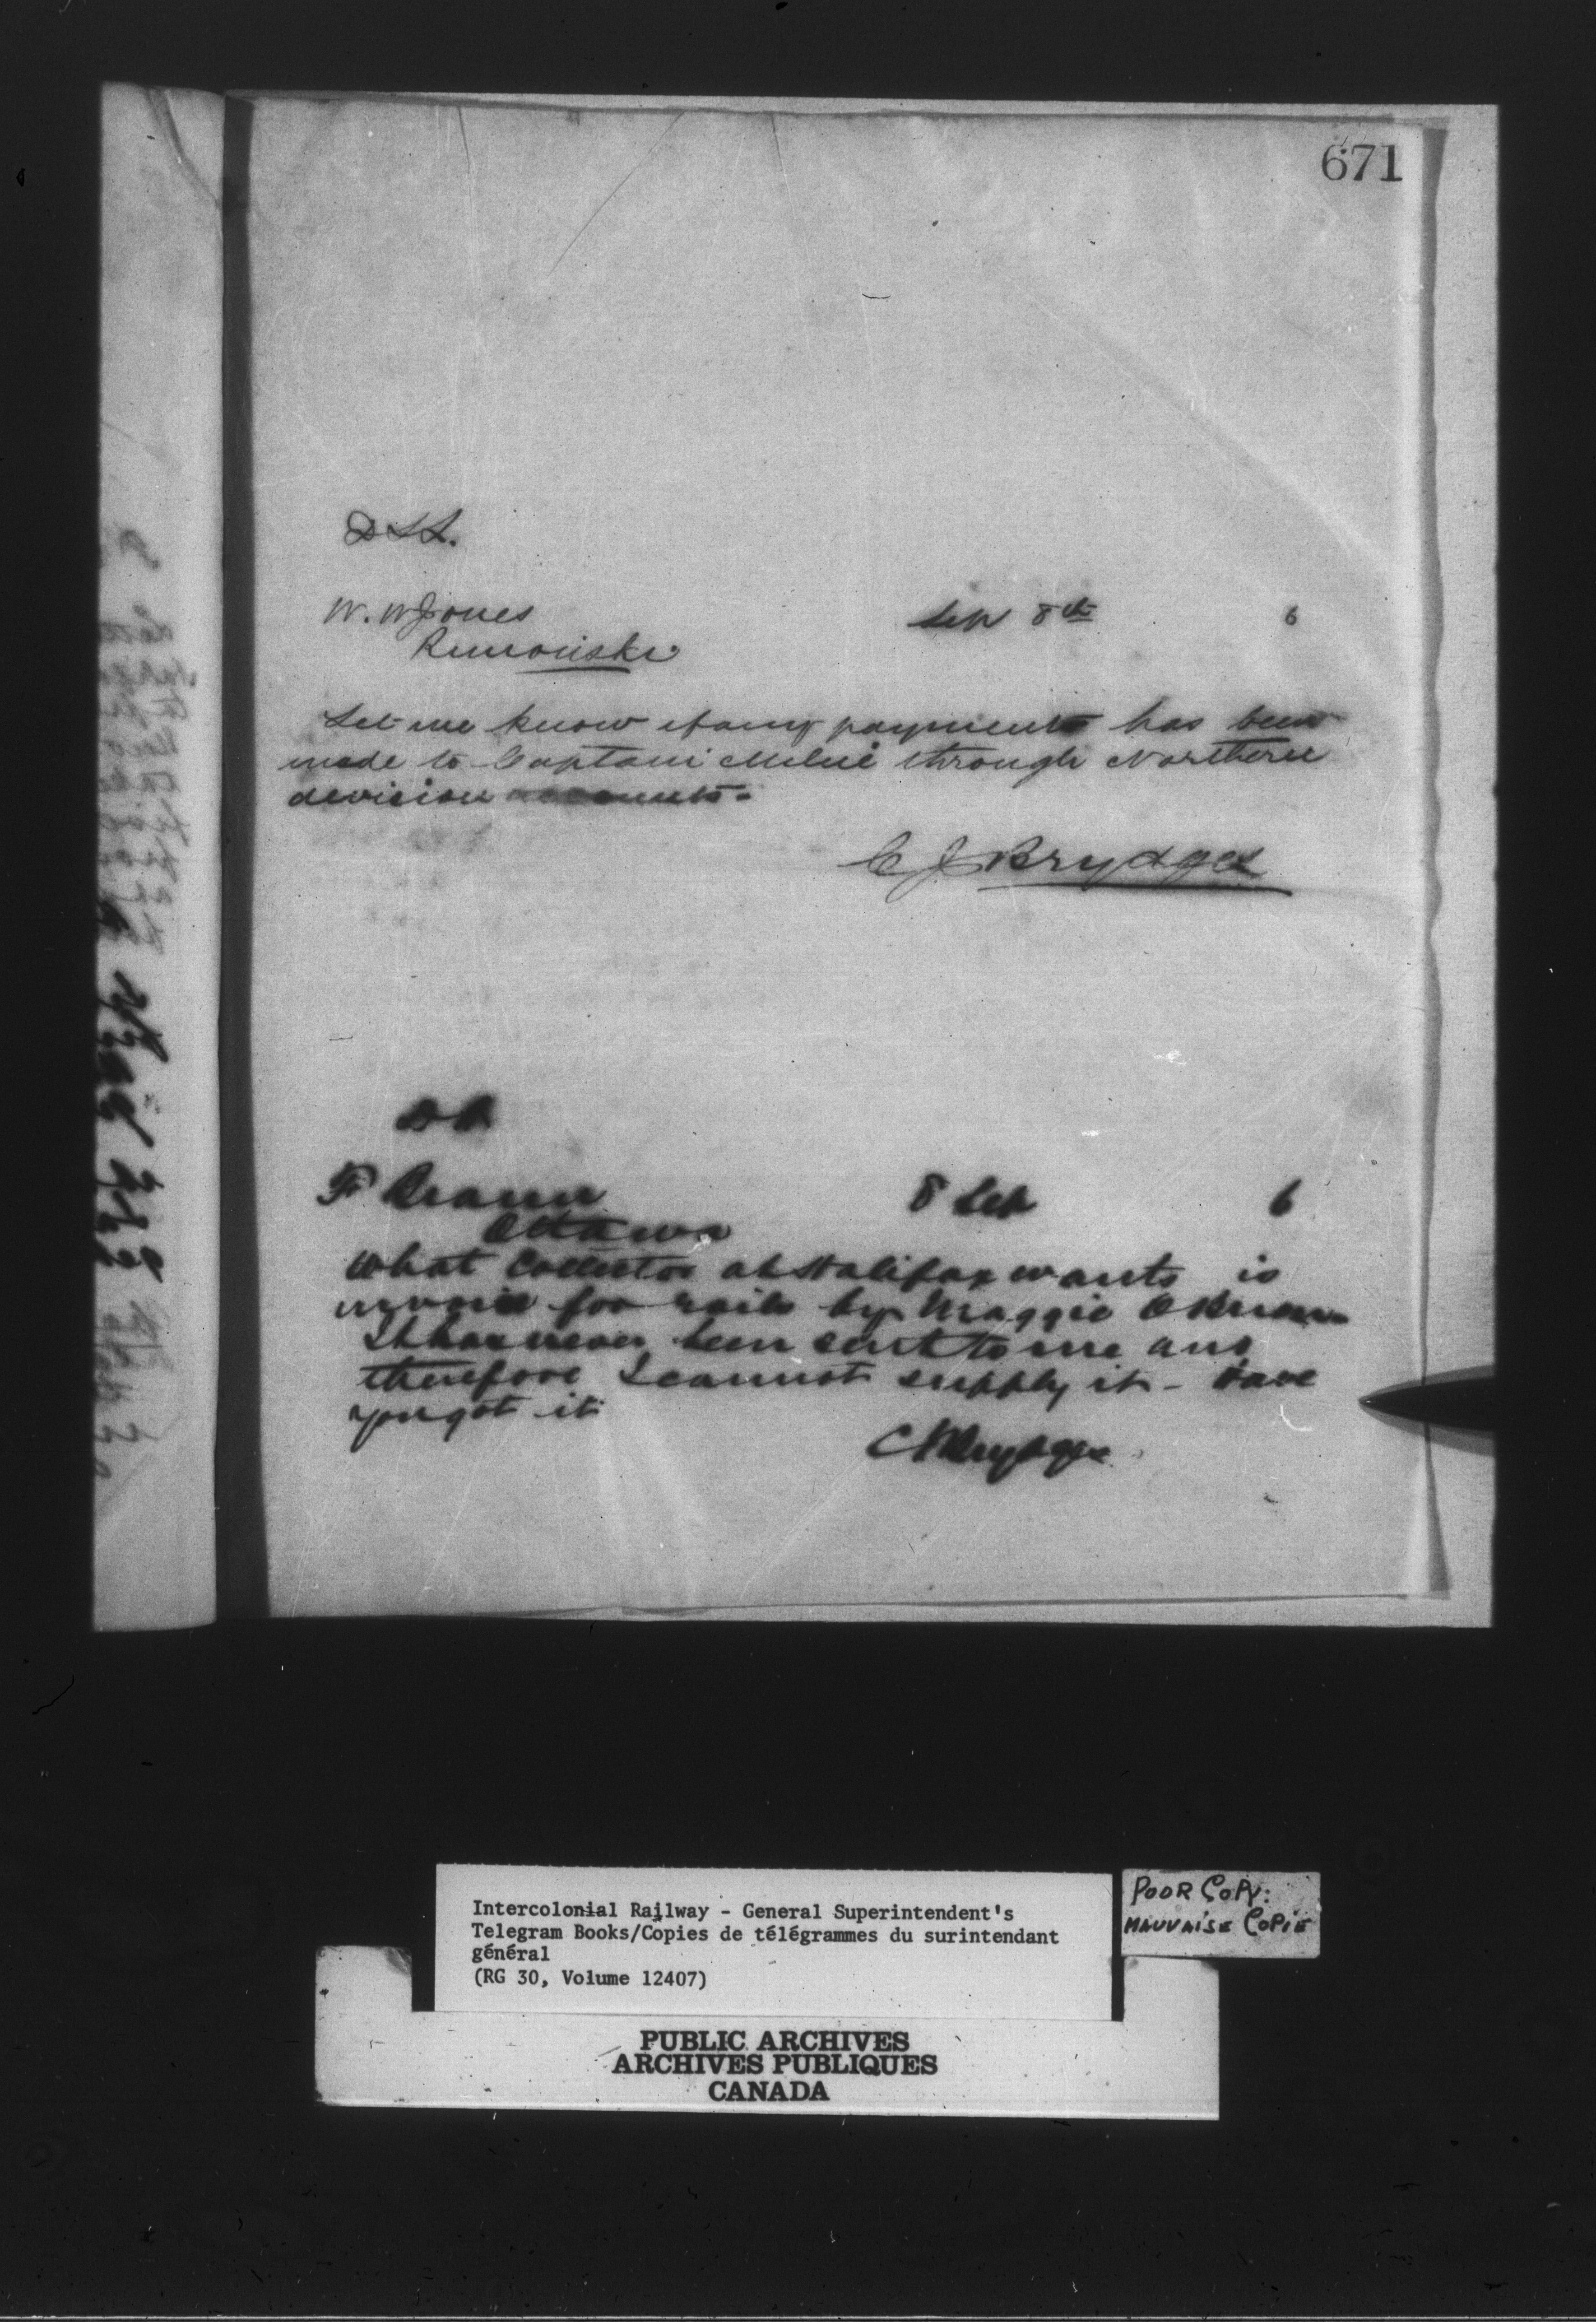 671
W. W Jones Sep 8th 6
Rimouski
Let me know if any payments has been
made to Captain Milne through Northern
division accounts.
C J Brydges
F Braun 8 Sep 6
Ottawa
What Collector at Halifax wants is
invoice for rails by Maggie
It has never been sent to me and
therefore I cannot supply it - Have
you got it
CJBrydges
Intercolonial Railway - General Superintendent's
Telegram Books/Copies de télégrammes du surintendant
général
(RG 30, Volume 12407)
POOR COPY:
MAUVAISE COPIE
PUBLIC ARCHIVES
ARCHIVES PUBLIQUES
CANADA